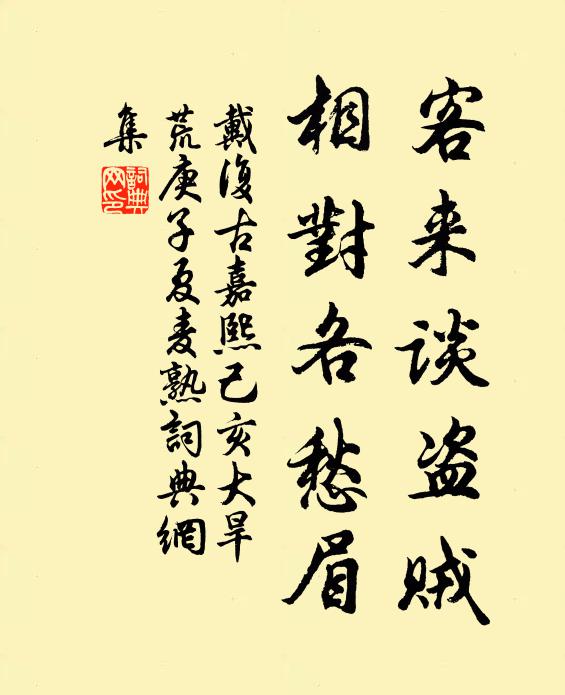 客来谈盗贼
相對各愁眉
戴復古嘉熙己亥大旱
荒庚子夏麦熟詞典網
集
詞典网印